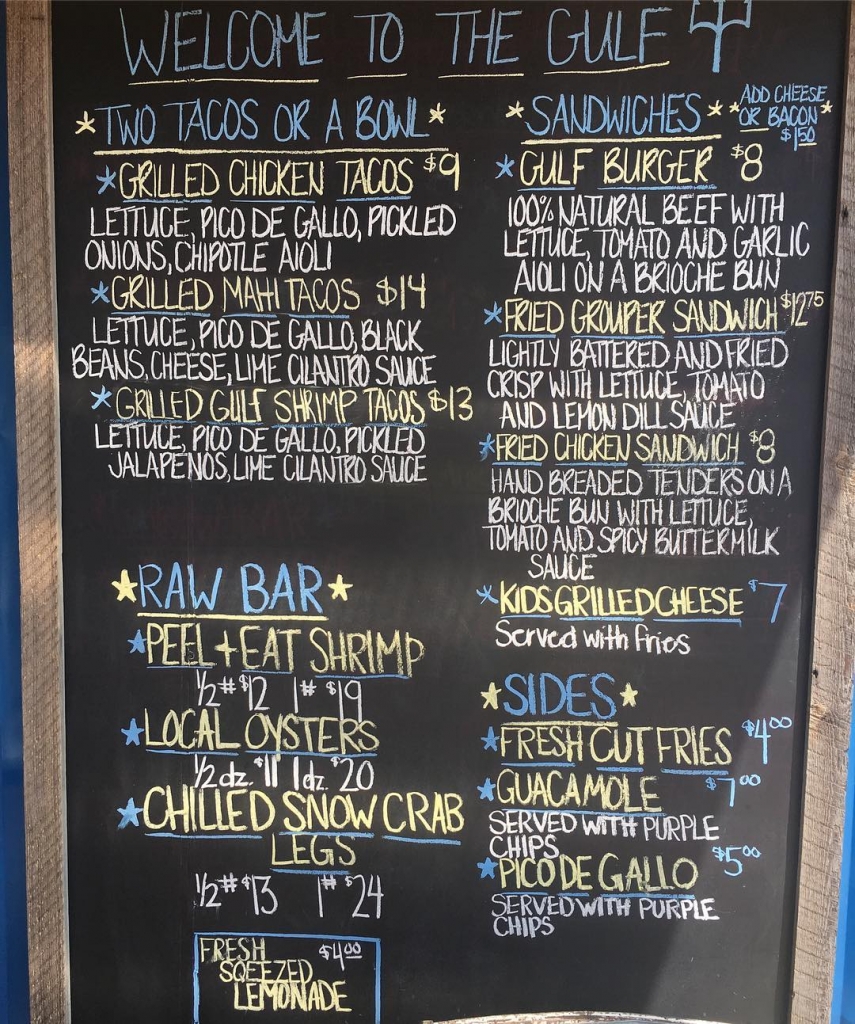 WELCOME TO THE GULF
*TWO TACOS OR A BOWL*
*GRILLED CHICKEN TACOS $9
LETTUCE, PICO DE GALLO, PICKLED
ONIONS, CHIPOTLE AIOLI
*GRILLED MAHI TACOS $14
LETTUCE, PICO DE GALLO, BLACK
BEANS, CHEESE, LIME CILANTRO SAUCE
*GRILLED GULF SHRIMP TACOS $13
LETTUCE, PICO DE GALLO, PICKLED
JALAPENOS, LIME CILANTRO SAUCE
★RAW BAR★
★PEEL + EAT SHRIMP
1/2# $12 1# $19
★LOCAL OYSTERS
1/2 dz. $11 1 dz. $20
★CHILLED SNOW CRAB
LEGS
1/2# $13 1# $24
FRESH $4.00
SQEEZED
LEMONADE
*SANDWICHES*
*ADD CHEESE
OR BACON*
$1.50
*GULF BURGER $8
100% NATURAL BEEF WITH
LETTUCE, TOMATO AND GARLIC
AIOLI ON A BRIOCHE BUN
*FRIED GROUPER SANDWICH $12.75
LIGHTLY BATTERED AND FRIED
CRISP WITH LETTUCE, TOMATO
AND LEMON DILL SAUCE
*FRIED CHICKEN SANDWICH $8
HAND BREADED TENDERS ON A
BRIOCHE BUN WITH LETTUCE,
TOMATO AND SPICY BUTTERMILK
SAUCE
*KIDS GRILLED CHEESE $7
Served with fries
★SIDES★
★FRESH CUT FRIES $4.00
★GUACAMOLE $7.00
SERVED WITH PURPLE
CHIPS
★PICO DE GALLO $5.00
SERVED WITH PURPLE
CHIPS